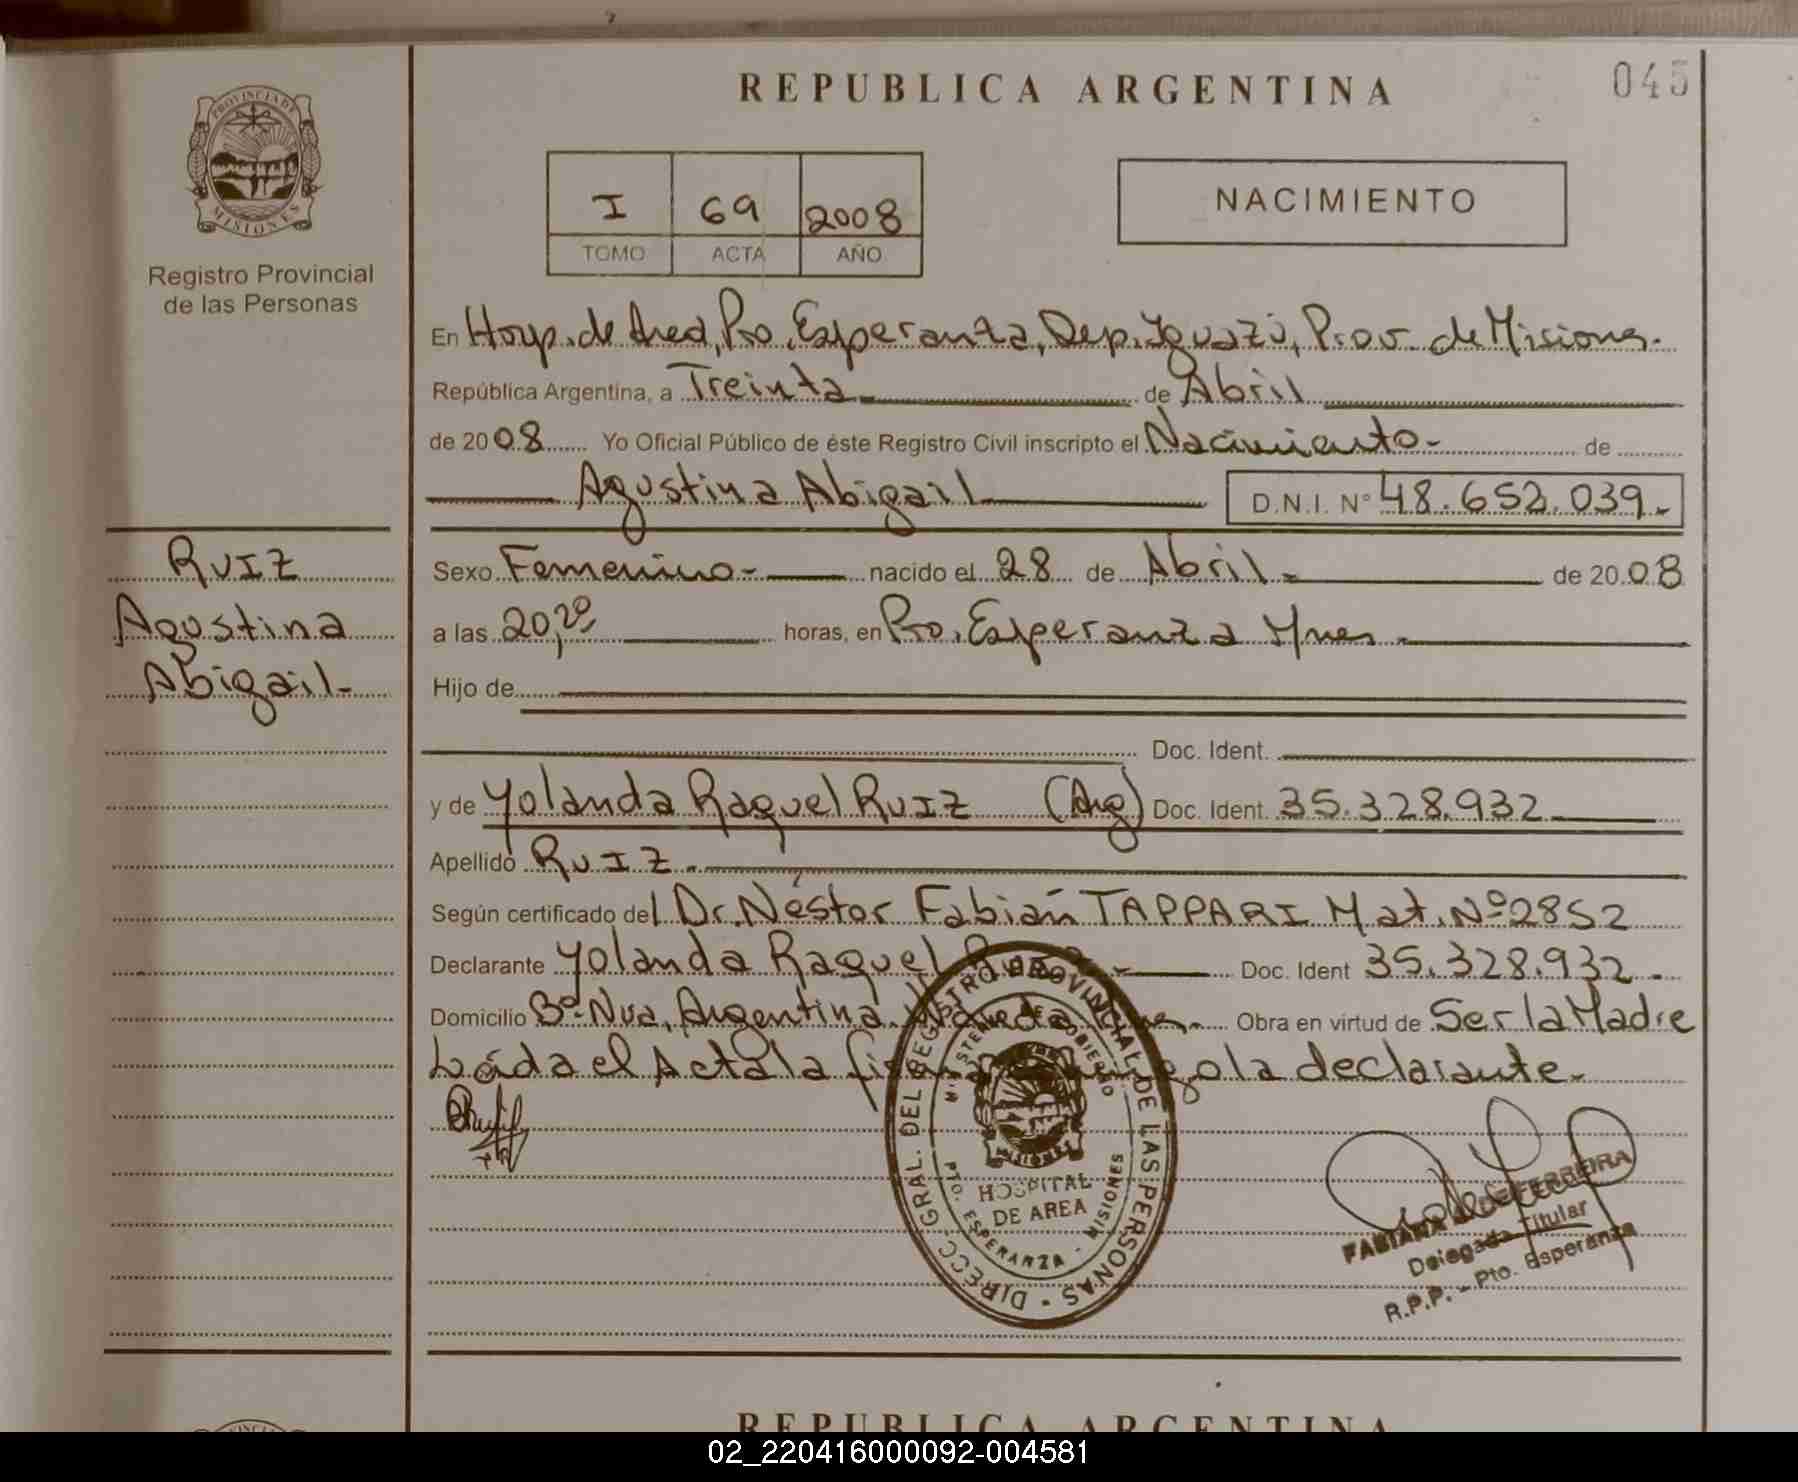 REPUBLICA ARGENTINA
045
PROVINCIA DE
MISIONES
Registro Provincial
de las Personas
I 69 2008
TOMO ACTA AÑO
NACIMIENTO
En Hosp. de Area, Pto. Esperanza, Dep. Iguazú, Prov. de Misiones.
República Argentina, a Treinta de Abril
de 2008 Yo Oficial Público de éste Registro Civil inscripto el Nacimiento- de
Agustina Abigail D.N.I. N° 48.652.039.-
Ruiz
Agustina
Abigail-
Sexo Femenino- nacido el 28 de Abril- de 2008
a las 20,20 horas, en Pto. Esperanza Mnes.
Hijo de
Doc. Ident.
y de Yolanda Raquel Ruiz (Arg) Doc. Ident. 35.328.932
Apellido Ruiz.
Según certificado del Dr. Néstor Fabián TAPPARI Mat. Nº 2852
Declarante Yolanda Raquel Ruiz- Doc. Ident 35.328.932.
Domicilio Bº Nva. Argentina. Wanda Mnes. Obra en virtud de Ser la Madre
Leída el Acta la firma conmigo la declarante.
DIRECC. GRAL. DEL REGISTRO PROVINCIAL DE LAS PERSONAS
MINISTERIO DE GOBIERNO
MISIONES
HOSPITAL
DE AREA
PTO. ESPERANZA - MISIONES
FABIANA DE FERREIRA
Delegada Titular
R.P.P. - Pto. Esperanza
REPUBLICA ARGENTINA
02_220416000092-004581